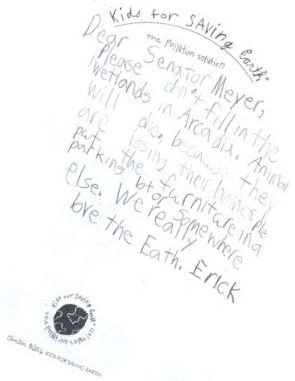 Kids for SAVing Earth
the Pollution solution
Dear Senator Meyer,
Please don't fill in the
wetlands in Arcadia. Animal
will die, because they
are losing their homes. Ple
put the furniture in a
parking lot or somewhere
else. We really
love the Eath. Erick
Kids for SAVING Earth
KIDS FOR SAVING EARTH